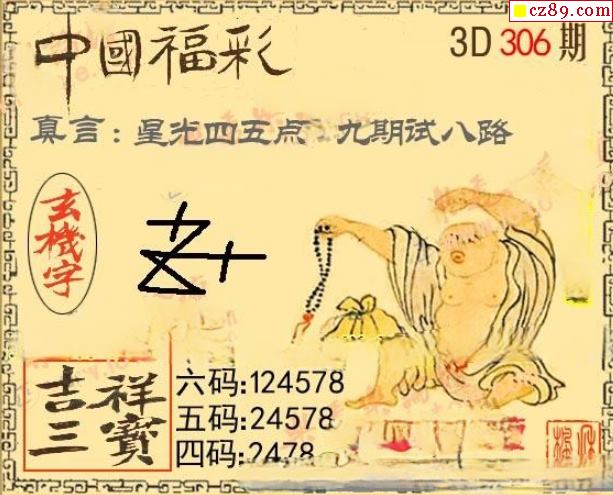 cz89.com
中國福彩
3D 306 期
真言：星光四五点 . 九期试八路
玄機字
吉祥
三寶
六码:124578
五码:24578
四码:2478